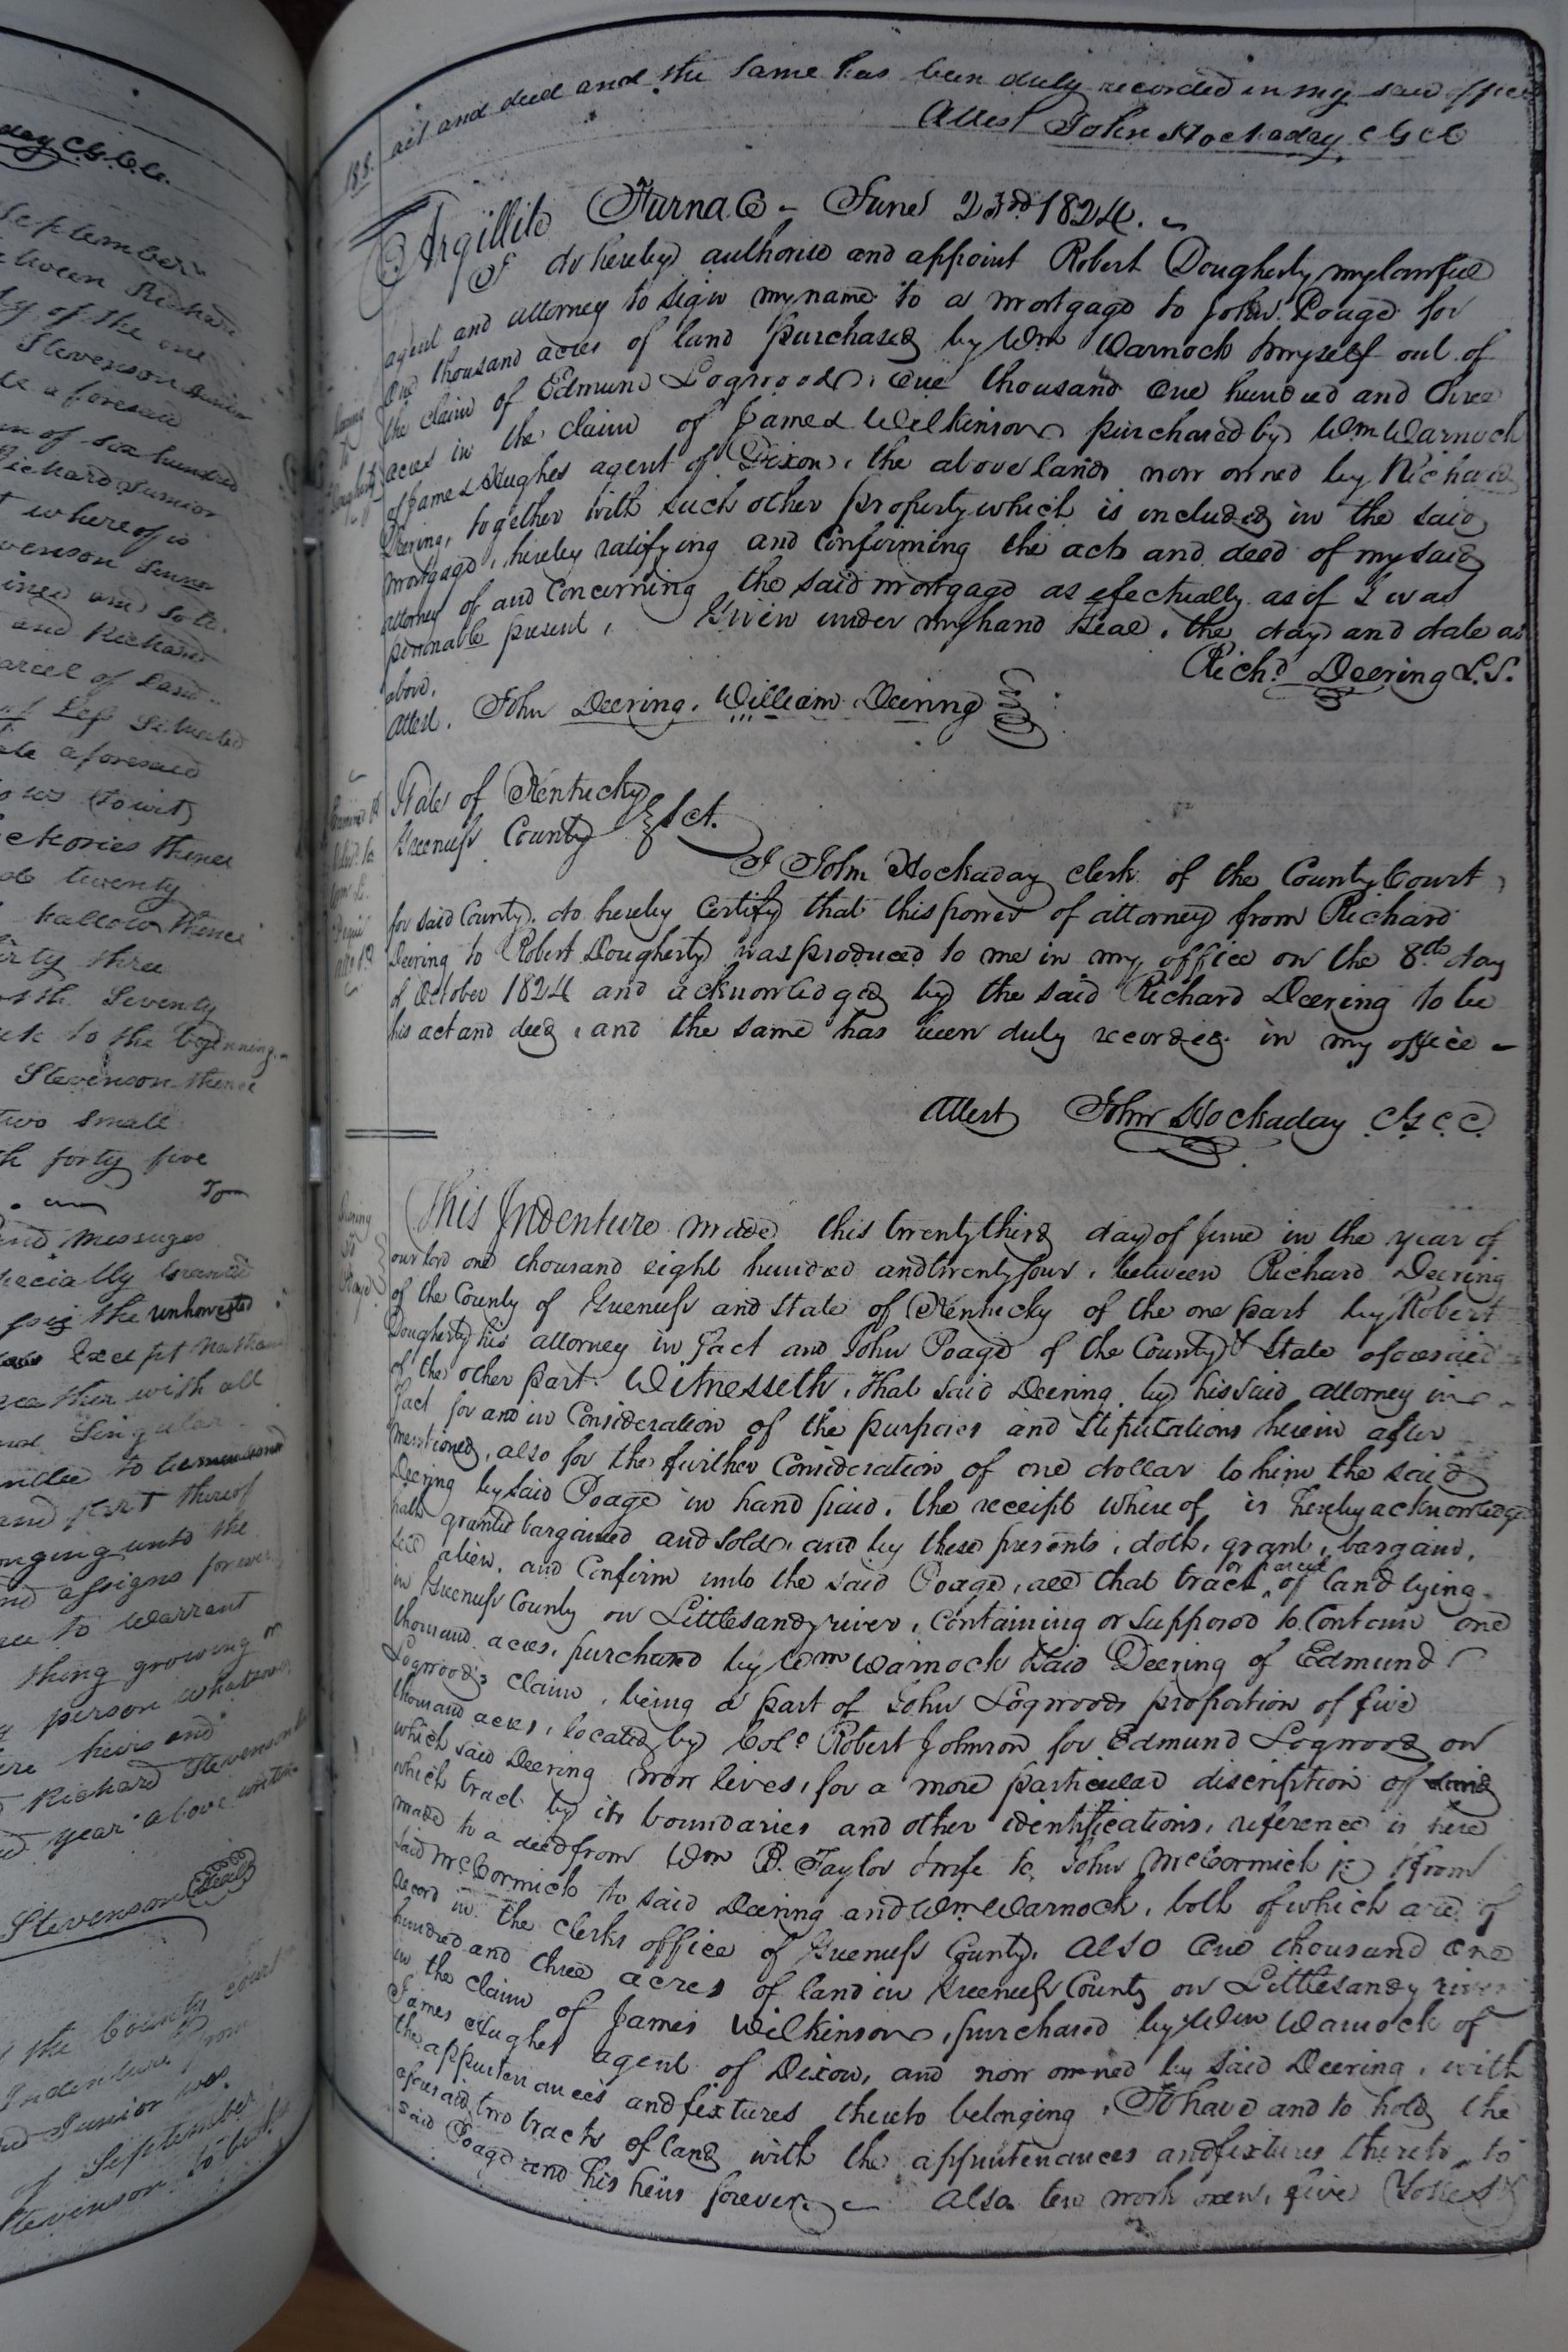 day C.G.C.C.
September
Richard
ty of the one
Stevenson Senior
aforesaid
of six hundred
Richard Junior
whereof is
Stevenson Senior
and Richard
parcel of Land
Less Situated
aforesaid
(towit)
thence
twenty
hallow thence
thirty three
Seventy
to the beginning
Stevenson thence
two small
forty five
To
and Messuages
the unhovested
Except Nathan
with all
Singular
and part thereof
belonging unto the
and assigns forever
to Warrant
thing growing or
person whatsoever
heirs and
Richard Stevenson
year above written
Stevenson Seal
the County Court
Indenture from
Junior was
of September
Stevenson to be his
188.
act and deed and the same has been duly recorded in my said office
Attest John Hockaday C G C C
Argillite Furnace - June 23rd 1824.
I do hereby authorise and appoint Robert Dougherty my lawful
agent and attorney to sign my name to a mortgage to John Poage for
One thousand acres of land purchased by Wm Warnock & myself out of
the claim of Edmund Logwood, One thousand One hundred and three
acres in the claim of James Wilkinson purchased by Wm Warnock
of James Hughes agent of Dixon, the above lands now owned by Richard
Deering, together with such other property which is included in the said
mortgage, hereby ratifying and Confirming the acts and deed of my said
attorney of and Concerning the said mortgage as efectually as if I was
personable present, Given under my hand & Seal, the day and date as
above. Richd Deering L.S.
Attest. John Deering. William Deering
State of Kentucky
Greenup County Sct.
I John Hockaday clerk of the County Court
for said County, do hereby Certify that this power of attorney from Richard
Deering to Robert Dougherty was produced to me in my office on the 8th day
of October 1824 and acknowledged by the said Richard Deering to be
his act and deed, and the same has been duly recorded in my office -
Attest John Hockaday C G C C
Deering
To
Poage
This Indenture made this twenty third day of June in the year of
our lord one thousand eight hundred and twenty four, between Richard Deering
of the County of Greenup and State of Kentucky of the one part by Robert
Dougherty his attorney in fact and John Poage of the County & State aforesaid
of the other part. Witnesseth, that said Deering by his said attorney in
fact for and in Consideration of the purposes and Stipulations herein after
mentioned, also for the further Consideration of one dollar to him the said
Deering by said Poage in hand paid, the receipt whereof is hereby acknowledged
hath granted bargained and sold, and by these presents, doth, grant, bargain,
sell alien, and Confirm unto the said Poage, all that tract or parcel of land lying
in Greenup County on Little sandy river, Containing or supposed to Contain one
thousand acres, purchased by Wm Warnock & said Deering of Edmund
Logwood's claim, being a part of John Logwoods proportion of five
thousand acres, located by Colo Robert Johnson for Edmund Logwood on
which said Deering now lives, for a more particular discription of said
which tract by its boundaries and other identifications, reference is here
made to a deed from Wm B. Taylor & wife to John McCormick jr & from
said McCormick to said Deering and Wm Warnock, both of which are of
Record in the clerks office of Greenup County. Also One thousand one
hundred and three acres of land in Greenup County on Little sandy river
in the claim of James Wilkinson, purchased by Wm Warnock of
James Hughes agent of Dixon, and now owned by said Deering, with
the appurtenances and fixtures thereto belonging, To have and to hold the
aforesaid two tracts of land with the appurtenances and fixtures thereto, to
said Poage and his heirs forever. Also ten work oxen, five Yokes &